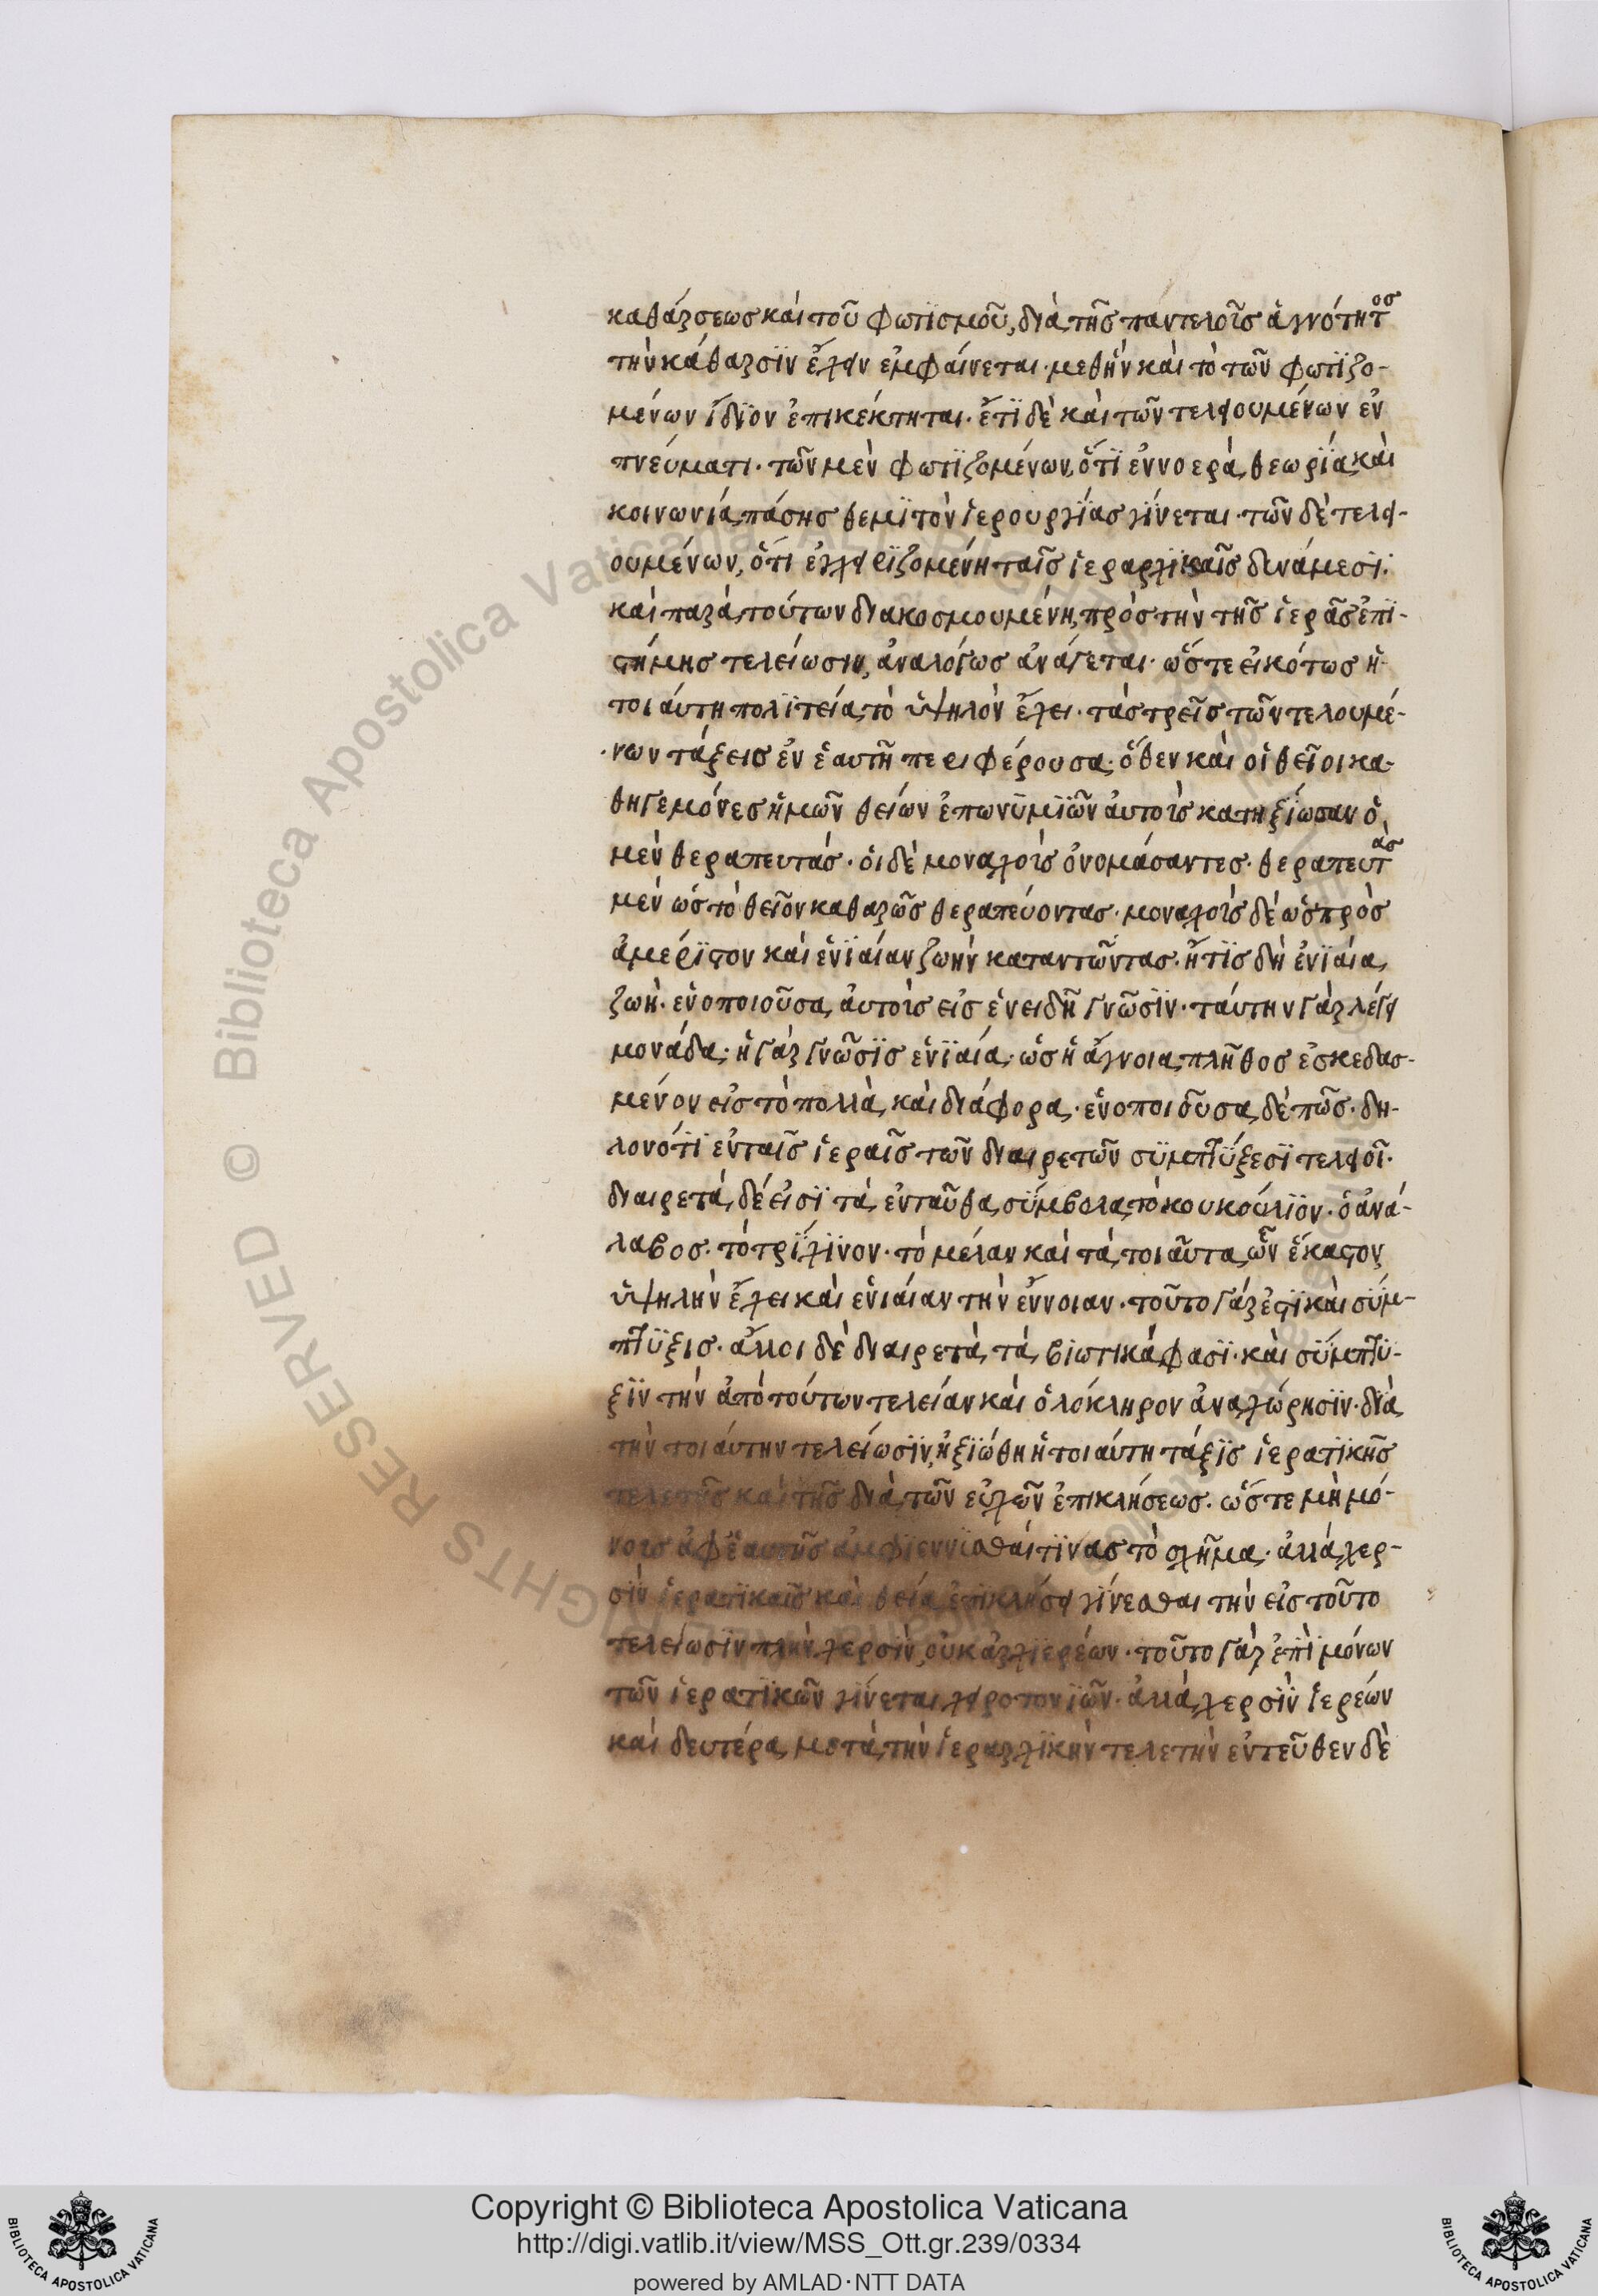 καθάρσεως καὶ τοῦ φωτϊσμοῦ, διὰ τῆς παντελοῖς ἁγνότητος
τὴν κάθαρσϊν ἔχειν ἐμφαίνεται· μεθ' ἣν καὶ τὸ τῶν φωτϊζο-
μένων ἴδϊον ἐπικέκτηται· ἔτϊ δὲ καὶ τῶν τελειουμένων ἐν
πνεύματι· τῶν μὲν φωτϊζομένων, ὅτϊ ἐν νοερᾶ θεωρΐα, καὶ
κοινωνία πάσης θεμϊτὸν ἱερουργΐας γΐνεται· τῶν δὲ τελει-
ουμένων, ὅτι ἐγχειρϊζομένη ταῖς ἱεραρχϊκαῖς δυνάμεσϊ·
καὶ παρὰ τούτων διακοσμουμένη, πρὸς τὴν τῆς ἱερᾶς ἐπϊ-
στήμης τελείωσιν, ἀναλόγως ἀνάγεται· ὥστε εἰκότως ἡ
τοιαύτη πολϊτεία τὸ ὑψηλὸν ἔχει· τὰς τρεῖς τῶν τελουμέ-
νων τάξεις ἐν ἑαυτῆ περιφέρουσα· ὅθεν καὶ οἱ θεῖοι κα-
θηγεμόνες ἡμῶν θείων ἐπωνϋμϊῶν αὐτοὶς κατηξίωσαν ὁ
μὲν θεραπευτάς· οἱ δὲ μοναχοὶς ὀνομάσαντες· θεραπευτὰς
μὲν ὡς τὸ θεῖον καθαρῶς θεραπεύοντας· μοναχοὶς δὲ ὡς πρὸς
ἀμέρϊστον καὶ ἑνϊαίαν ζωὴν καταντῶντας· ἥτϊς δὴ ἑνϊαία
ζωὴ· ἑνοποιοῦσα αὐτοὶς εἰς ἑνειδῆ γνῶσϊν· ταύτην γὰρ λέγει
μονάδα· ἡ γὰρ γνῶσϊς ἑνϊαία· ὡς ἡ ἄγνοια πλῆθος ἐσκεδασ-
μένον εἰς τὸ πολλὰ καὶ διάφορα· ἑνοποιοῦσα δὲ πῶς· δη-
λονότϊ ἐν ταῖς ἱεραῖς τῶν διαιρετῶν σϋμπτΰξεσϊ τελειοῖ·
διαιρετὰ δέ εἰσϊ τὰ ἐνταῦθα σύμβολα τὸ κουκούλϊον· ὁ ἀνά-
λαβος· τὸ τρΐχϊνον· τὸ μέλαν καὶ τὰ τοιαῦτα, ὧν ἕκαστον
ὑψηλὴν ἔχει καὶ ἑνιαίαν τὴν ἔννοιαν· τοῦτο γάρ ἐστϊ καὶ σύμ-
πτϋξις· ἄλλοι δὲ διαιρετὰ τὰ βιωτικά φασϊ· καὶ σύμπτϋ-
ξϊν τὴν ἀπὸ τούτων τελείαν καὶ ὁλόκληρον ἀναχώρησϊν· διὰ
τὴν τοιαύτην τελείωσϊν, ἠξϊώθη ἡ τοιαύτη τάξϊς ἱερατϊκῆς
τελετῆς καὶ τῆς διὰ τῶν εὐχῶν ἐπικλήσεως· ὥστε μὴ μό-
νοις ἀφ' ἑαυτῆς ἀμφϊεννϋσθαί τϊνας τὸ σχῆμα· ἀλλὰ χερ-
σὶν ἱερατϊκαῖς καὶ θεία ἐπικλήσει γΐνεσθαι τὴν εἰς τοῦτο
τελείωσϊν πλὴν χερσὶν, οὐκ ἀρχϊερέων· τοῦτο γὰρ ἐπὶ μόνων
τῶν ἱερατϊκῶν γΐνεται χειροτονϊῶν· ἀλλὰ χερσὶν ἱερέων
καὶ δευτέρα μετὰ τὴν ἱεραρχϊκὴν τελετὴν ἐντεῦθεν δὲ
Copyright © Biblioteca Apostolica Vaticana
http://digi.vatlib.it/view/MSS_Ott.gr.239/0334
powered by AMLAD·NTT DATA